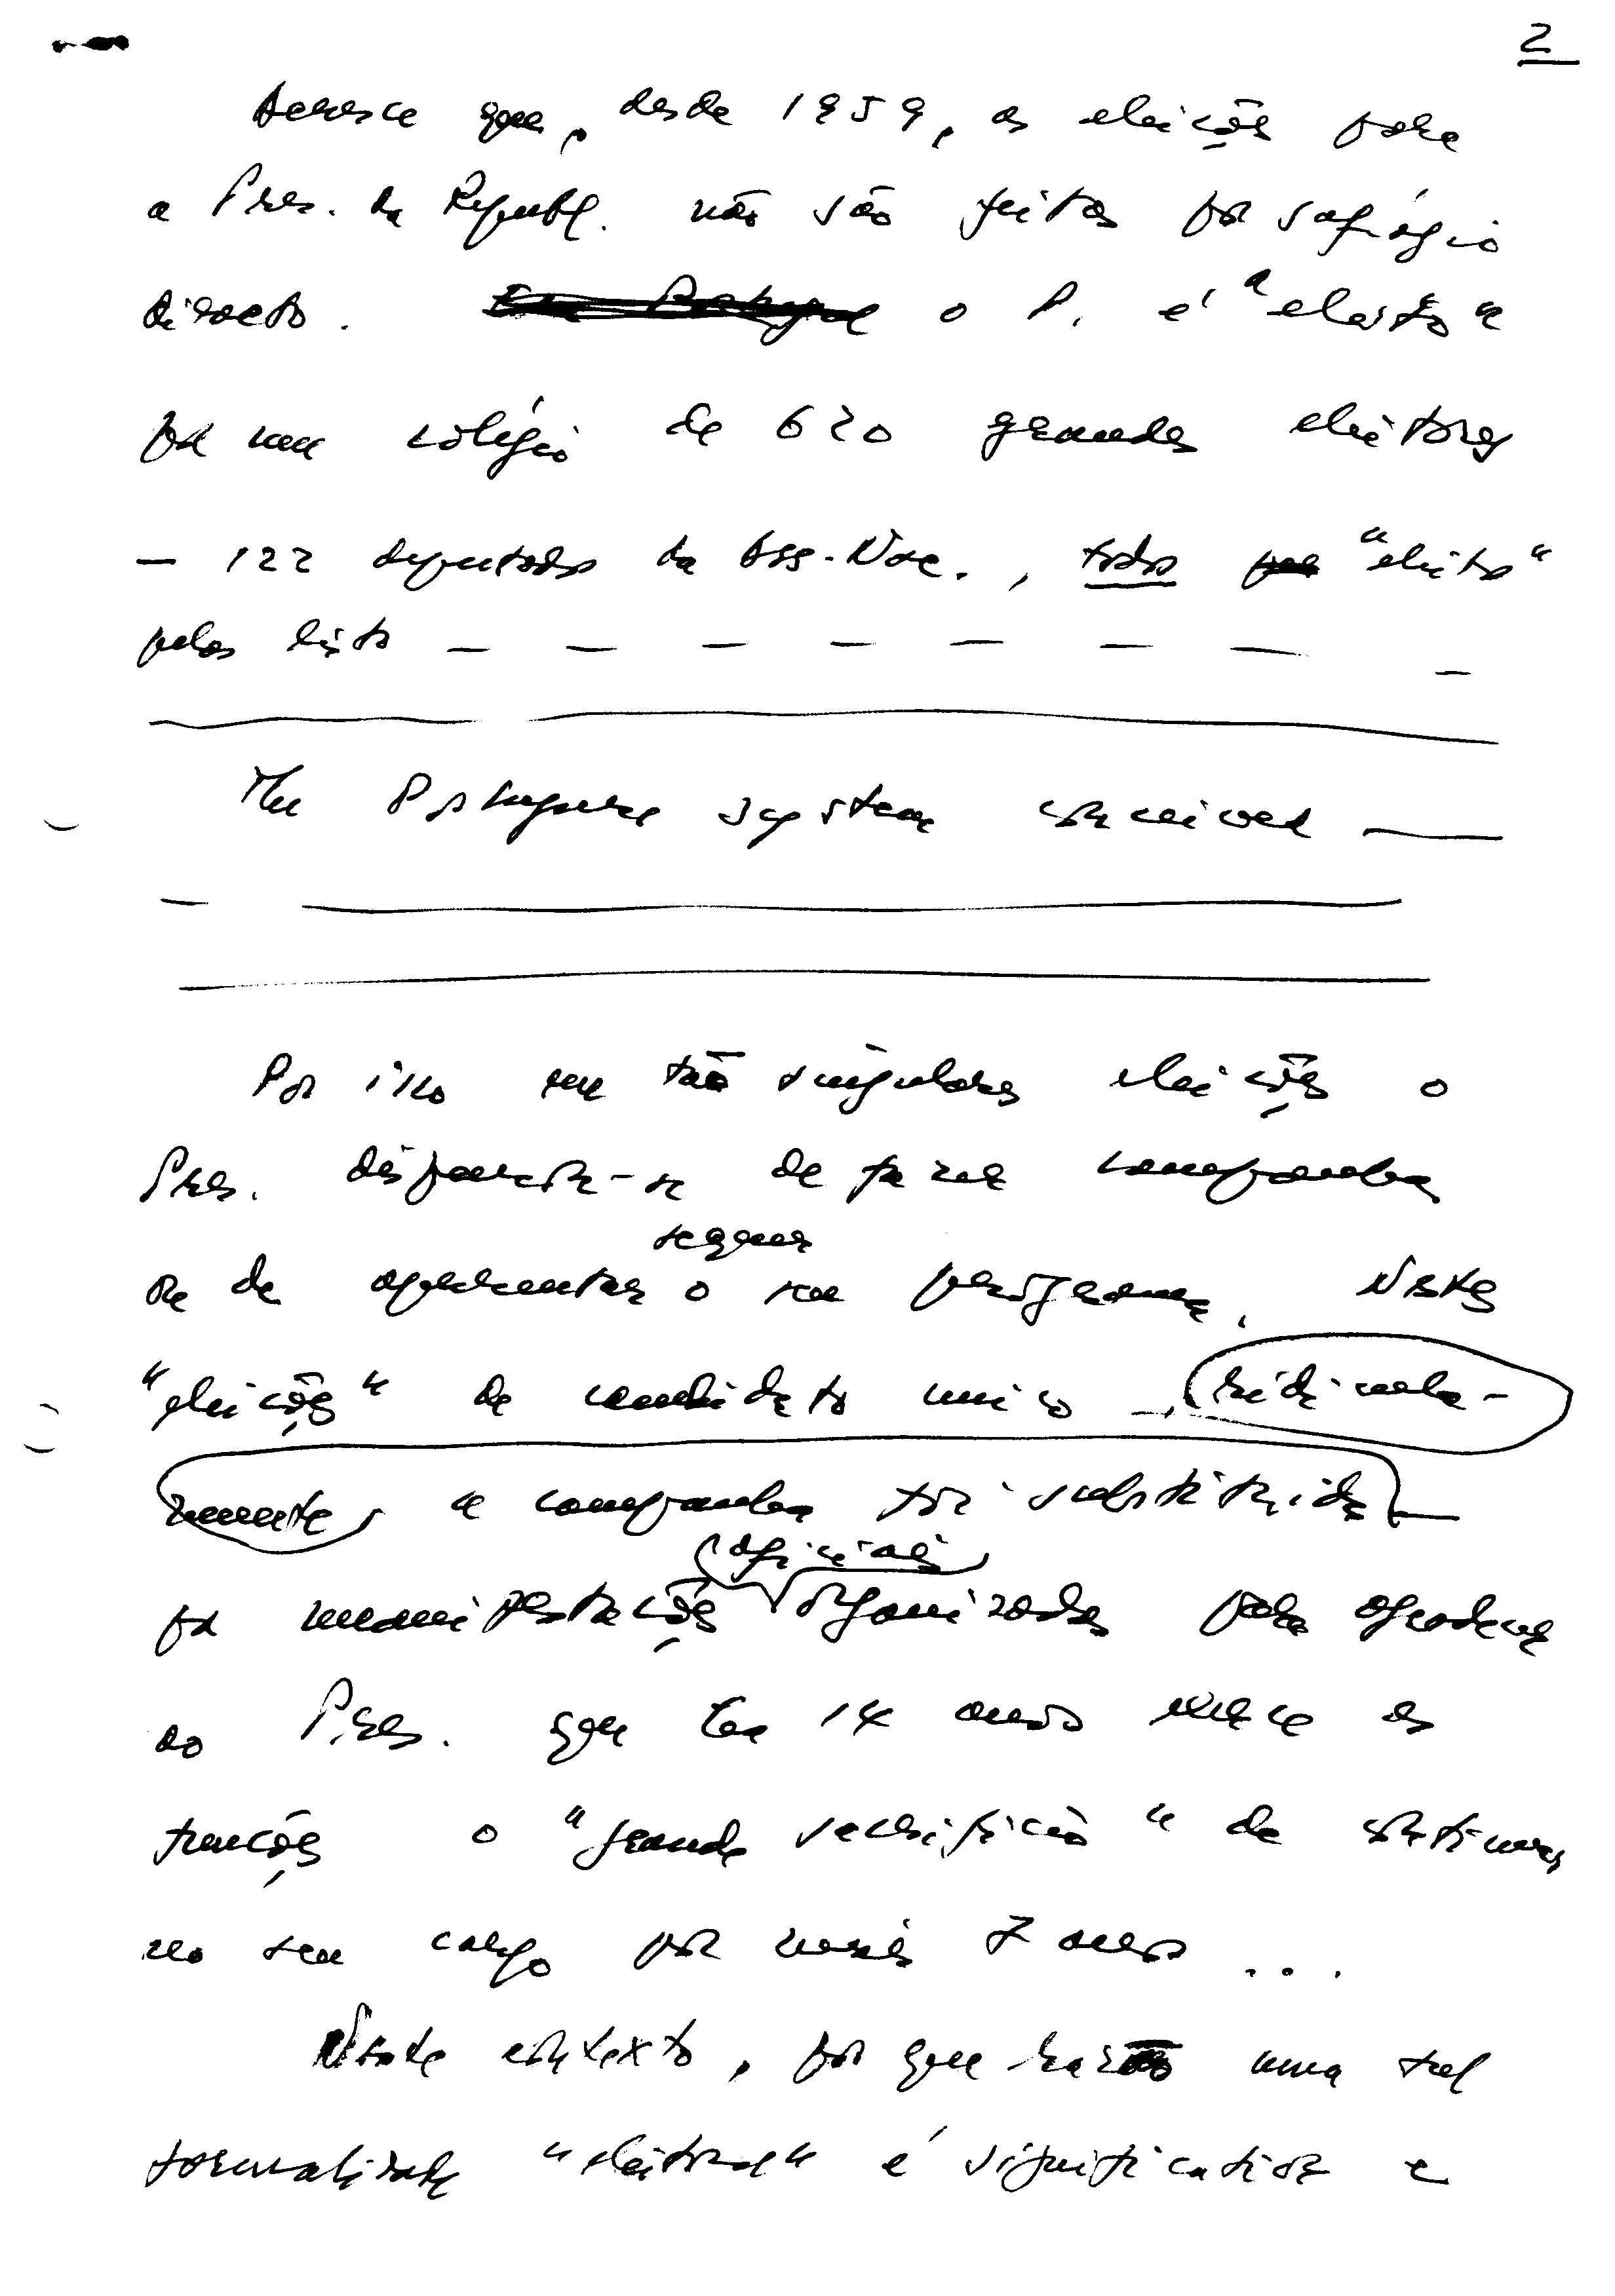 2
Acresce que, desde 1959, as eleições para
a Pres. da Republ. não são feitas por sufrágio
directo. O P. é "eleito"
por um colégio de 620 grandes eleitores
— 122 deputados da Ass. Nac., todos "eleitos"
pelas listas — — — — — — — —
The Portuguese system conceived ——
Por isso em tão singulares eleições o
Pres. dispensou-se de fazer campanha
ou de apresentar sequer o seu programa. Nestas
"eleições" de candidato único —, ridicula-
mente, a campanha foi substituída —
por manifestações oficiais organizadas para agradecer
ao Pres. que há 14 anos exerce as
funções o "grande sacrifício" de continuar
no seu cargo por mais 7 anos ...
Neste contexto, por que razão uma tal
formalidade "eleitoral" é significativa e